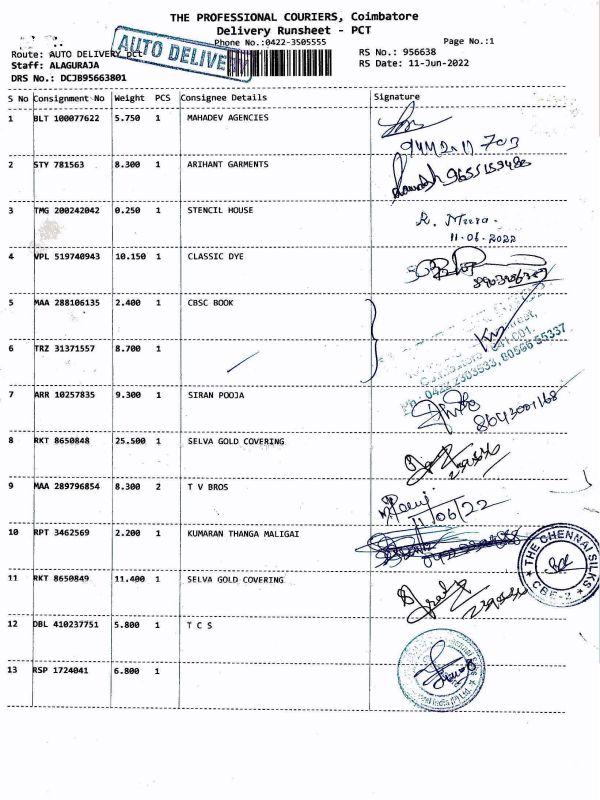 THE PROFESSIONAL COURIERS, Coimbatore
Delivery Runsheet - PCT
Phone No.:0422-3505555
Page No.:1
AUTO DELIVERY
Route: AUTO DELIVERY pct
RS No.: 956638
Staff: ALAGURAJA
RS Date: 11-Jun-2022
DRS No.: DCJB95663801
S No Consignment No Weight PCS Consignee Details Signature
1 BLT 100077622 5.750 1 MAHADEV AGENCIES
2 STY 781563 8.300 1 ARIHANT GARMENTS
3 TMG 200242042 0.250 1 STENCIL HOUSE
R. Meera.
11-06-2022
4 VPL 519740943 10.150 1 CLASSIC DYE
5 MAA 288106135 2.400 1 CBSC BOOK
6 TRZ 31371557 8.700 1
7 ARR 10257835 9.300 1 SIRAN POOJA
8 RKT 8650848 25.500 1 SELVA GOLD COVERING
9 MAA 289796854 8.300 2 T V BROS
11/06/22
10 RPT 3462569 2.200 1 KUMARAN THANGA MALIGAI
THE CHENNAI SILKS
CBE-2
11 RKT 8650849 11.400 1 SELVA GOLD COVERING
12 DBL 410237751 5.800 1 T C S
13 RSP 1724041 6.800 1